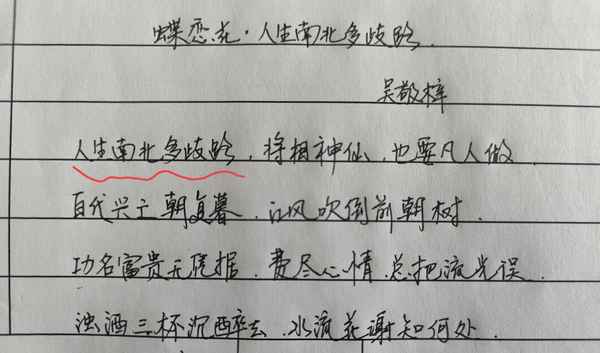 蝶恋花·人生南北多歧路.
吴敬梓
人生南北多歧路,将相神仙,也要凡人做.
百代兴亡朝复暮,江风吹倒前朝树.
功名富贵无凭据,费尽心情,总把流光误.
浊酒三杯沉醉去,水流花谢知何处.